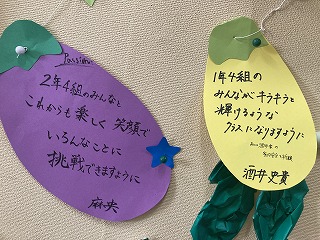 Passion
2年4組のみんなと
これからも楽しく 笑顔で
いろんなことに
挑戦できますように
麻央
1年4組の
みんながキラキラと
輝けるような
クラスになりますように
酒井史貴